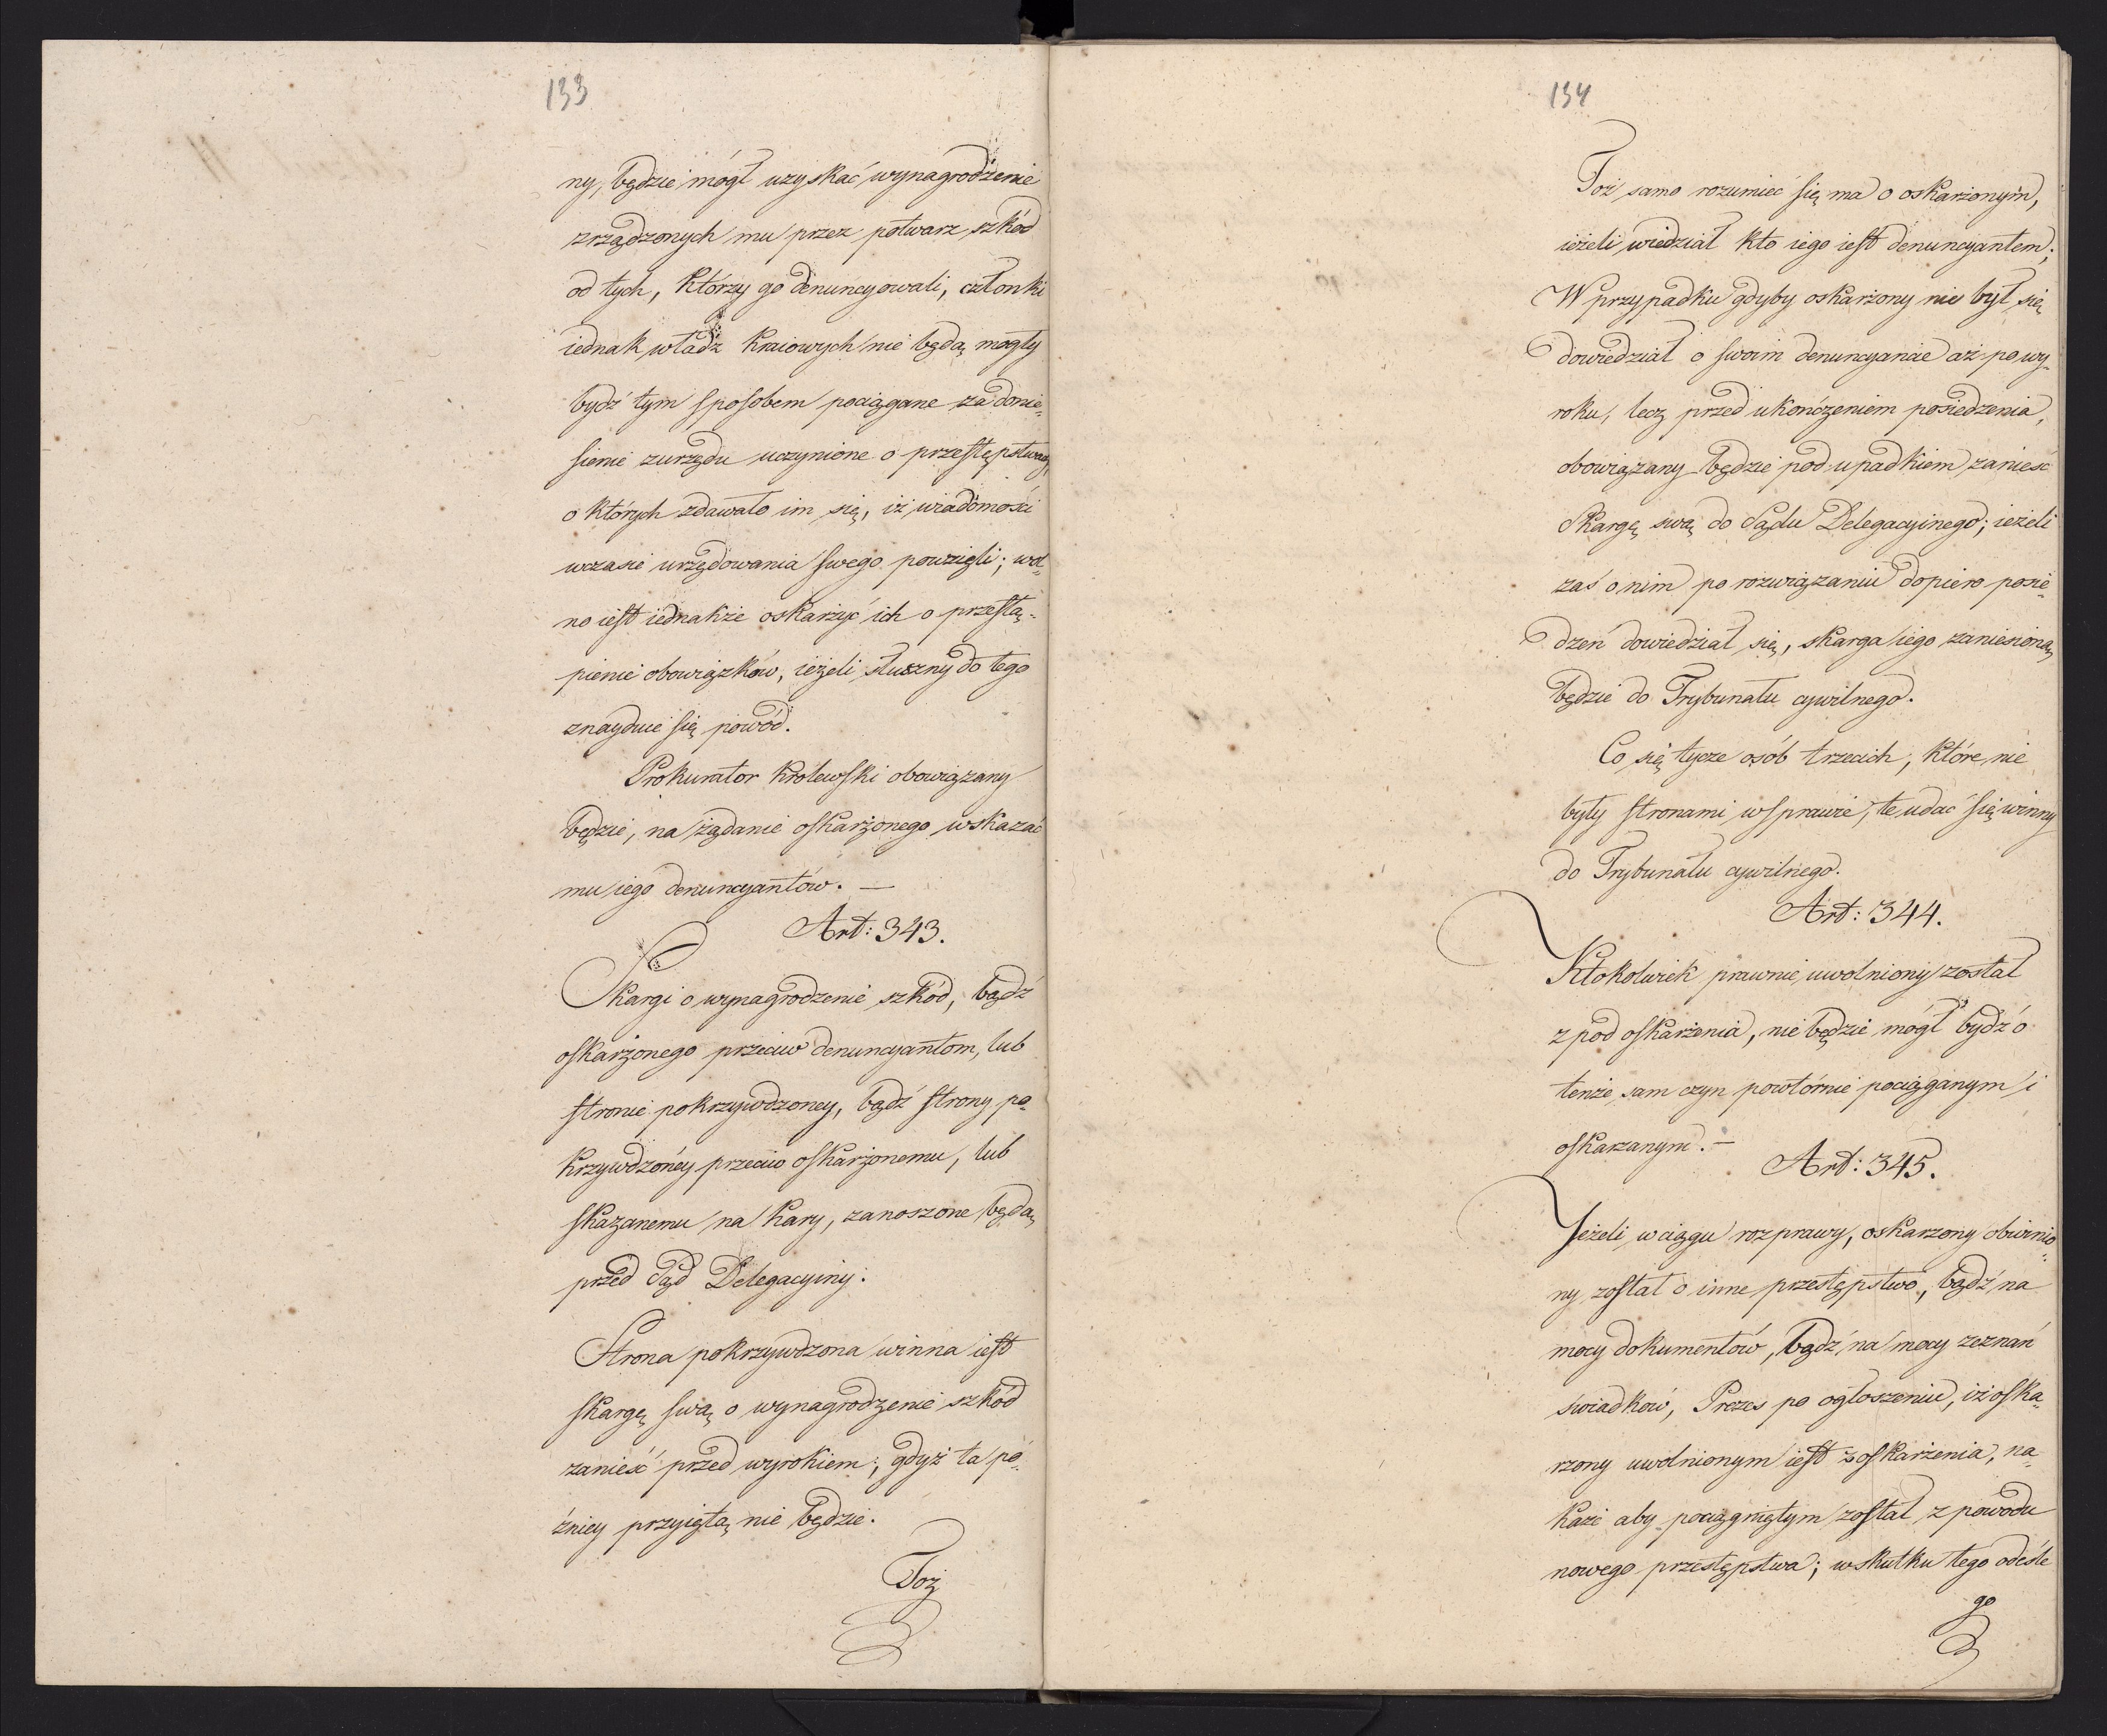 133
ny, będzie mógł uzyskać wynagrodzenie
zrządzonych mu przez potwarz szkód
od tych, którzy go denuncyowali, członki
iednak władz kraiowych nie będą mogły
bydź tym sposobem pociągane za donie-
sienie zurzędu uczynione o przestępstwach,
o których zdawało im się, iż wiadomości
wczasie urzędowania swego powzięli; wol-
no iest iednakże oskarżyć ich o przestą-
pienie obowiązków, ieżeli słuszny do tego
znayduie się powód.
Prokurator Królewski obowiązany
będzie, na żądanie oskarżonego wskazać
mu iego denuncyantów. —
Art: 343.
Skargi o wynagrodzenie szkód, bądź
oskarżonego przeciw denuncyantom, lub
stronie pokrzywdzoney, bądź strony po-
krzywdzoney przeciw oskarżonemu, lub
skazanemu na kary, zanoszone będą,
przed Sąd Delegacyiny.
Strona pokrzywdzona winna iest
skargę swą o wynagrodzenie szkód
zanieść przed wyrokiem; gdyż ta pó-
źniey przyiętą nie będzie.
Toż
134
Toż samo rozumieć się ma o oskarżonym,
ieżeli wiedział kto iego iest denuncyantem;
W przypadku gdyby oskarżony nie był się
dowiedział o swoim denuncyancie aż po wy-
roku, lecz przed ukończeniem posiedzenia,
obowiązany będzie pod upadkiem zanieść
Skargę swą do Sądu Delegacyinego; ieżeli
zaś o nim po rozwiązaniu dopiero posie-
dzeń dowiedział się, skarga iego zaniesioną
będzie do Trybunału cywilnego.
Co się tycze osób trzecich, które nie
były stronami wsprawie, te udać się winny
do Trybunału cywilnego.
Art: 344.
Ktokolwiek prawnie uwolniony został
z pod oskarżenia, nie będzie mógł bydź o
tenże sam czyn powtórnie pociąganym i
oskarzanym. —
Art: 345.
Jeżeli wciągu rozprawy, oskarzony obwinio-
ny został o inne przestępstwo, bądź na
mocy dokumentów, bądź na mocy zeznań
świadków, Prezes po ogłoszeniu, iż oska-
rzony uwolnionym iest z oskarżenia, na-
każe aby pociągniętym został z powodu
nowego przestępstwa; wskutku tego odeśle
go